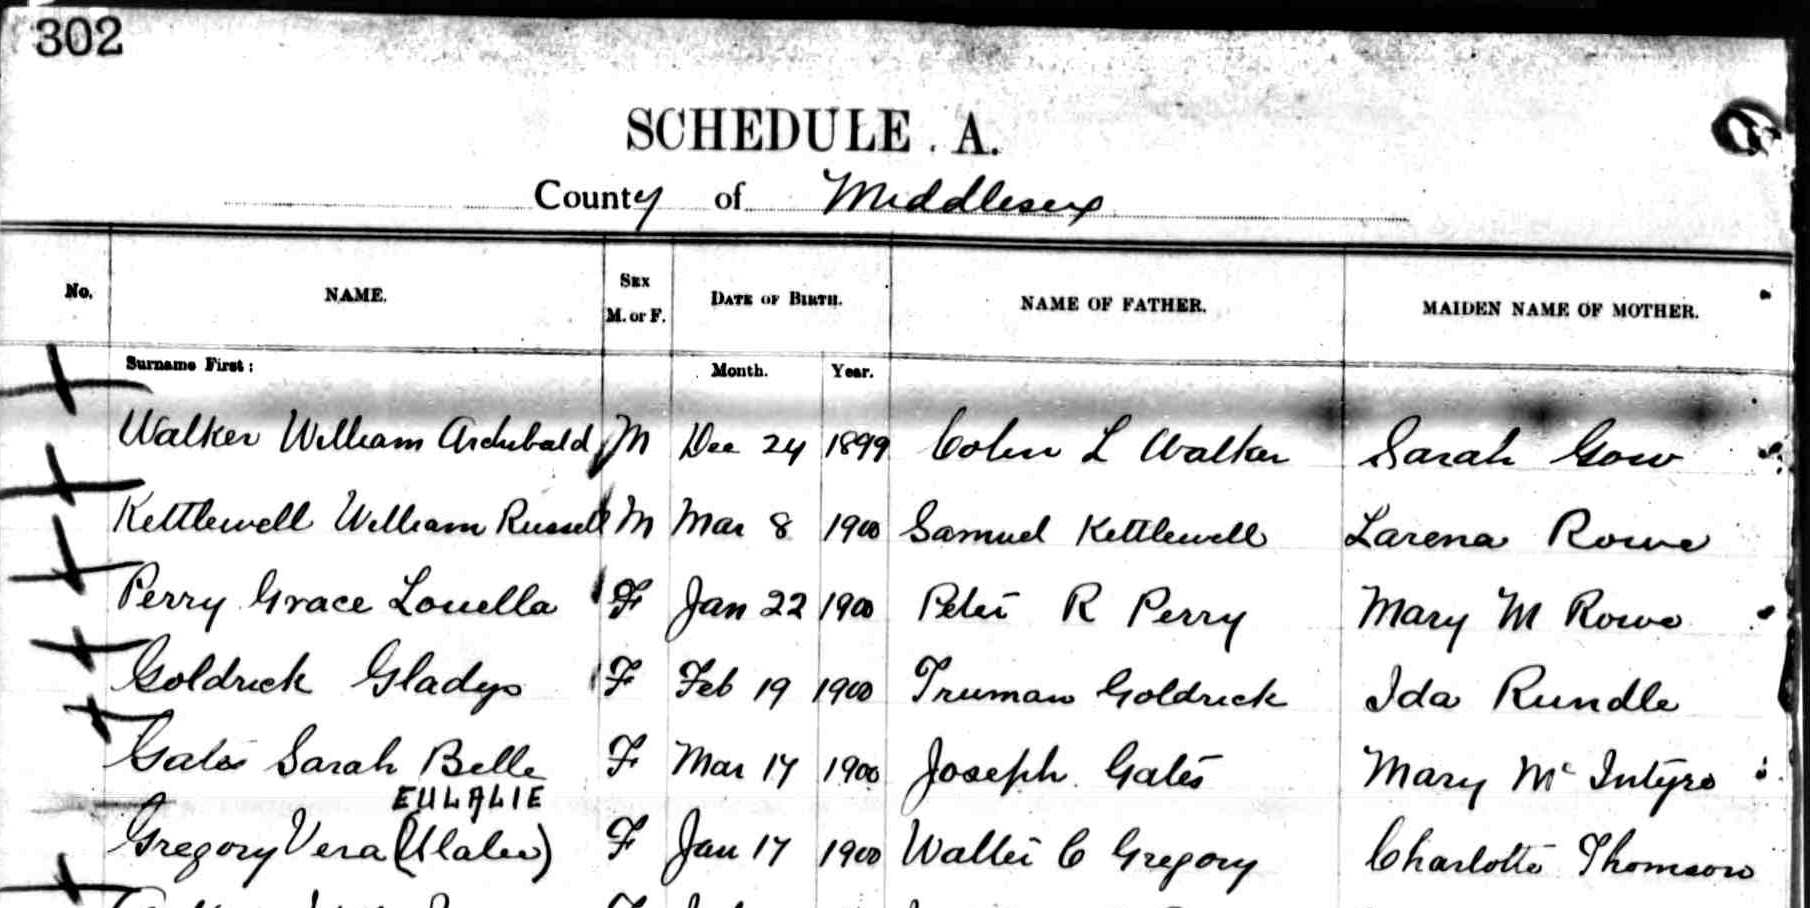 302
SCHEDULE A.
County of Middlesex
No. NAME. SEX M. or F. DATE OF BIRTH. NAME OF FATHER. MAIDEN NAME OF MOTHER.
Surname First: Month. Year.
Walker William Archibald M Dec 24 1899 Colin L Walker Sarah Gow
Kettlewell William Russell M Mar 8 1900 Samuel Kettlewell Larena Rowe
Perry Grace Louella F Jan 22 1900 Peter R Perry Mary M Rowe
Goldrick Gladys F Feb 19 1900 Truman Goldrick Ida Rundle
Gates Sarah Belle F Mar 17 1900 Joseph Gates Mary McIntyre
EULALIE
Gregory Vera (Ulalee) F Jan 17 1900 Walter C Gregory Charlotte Thomson